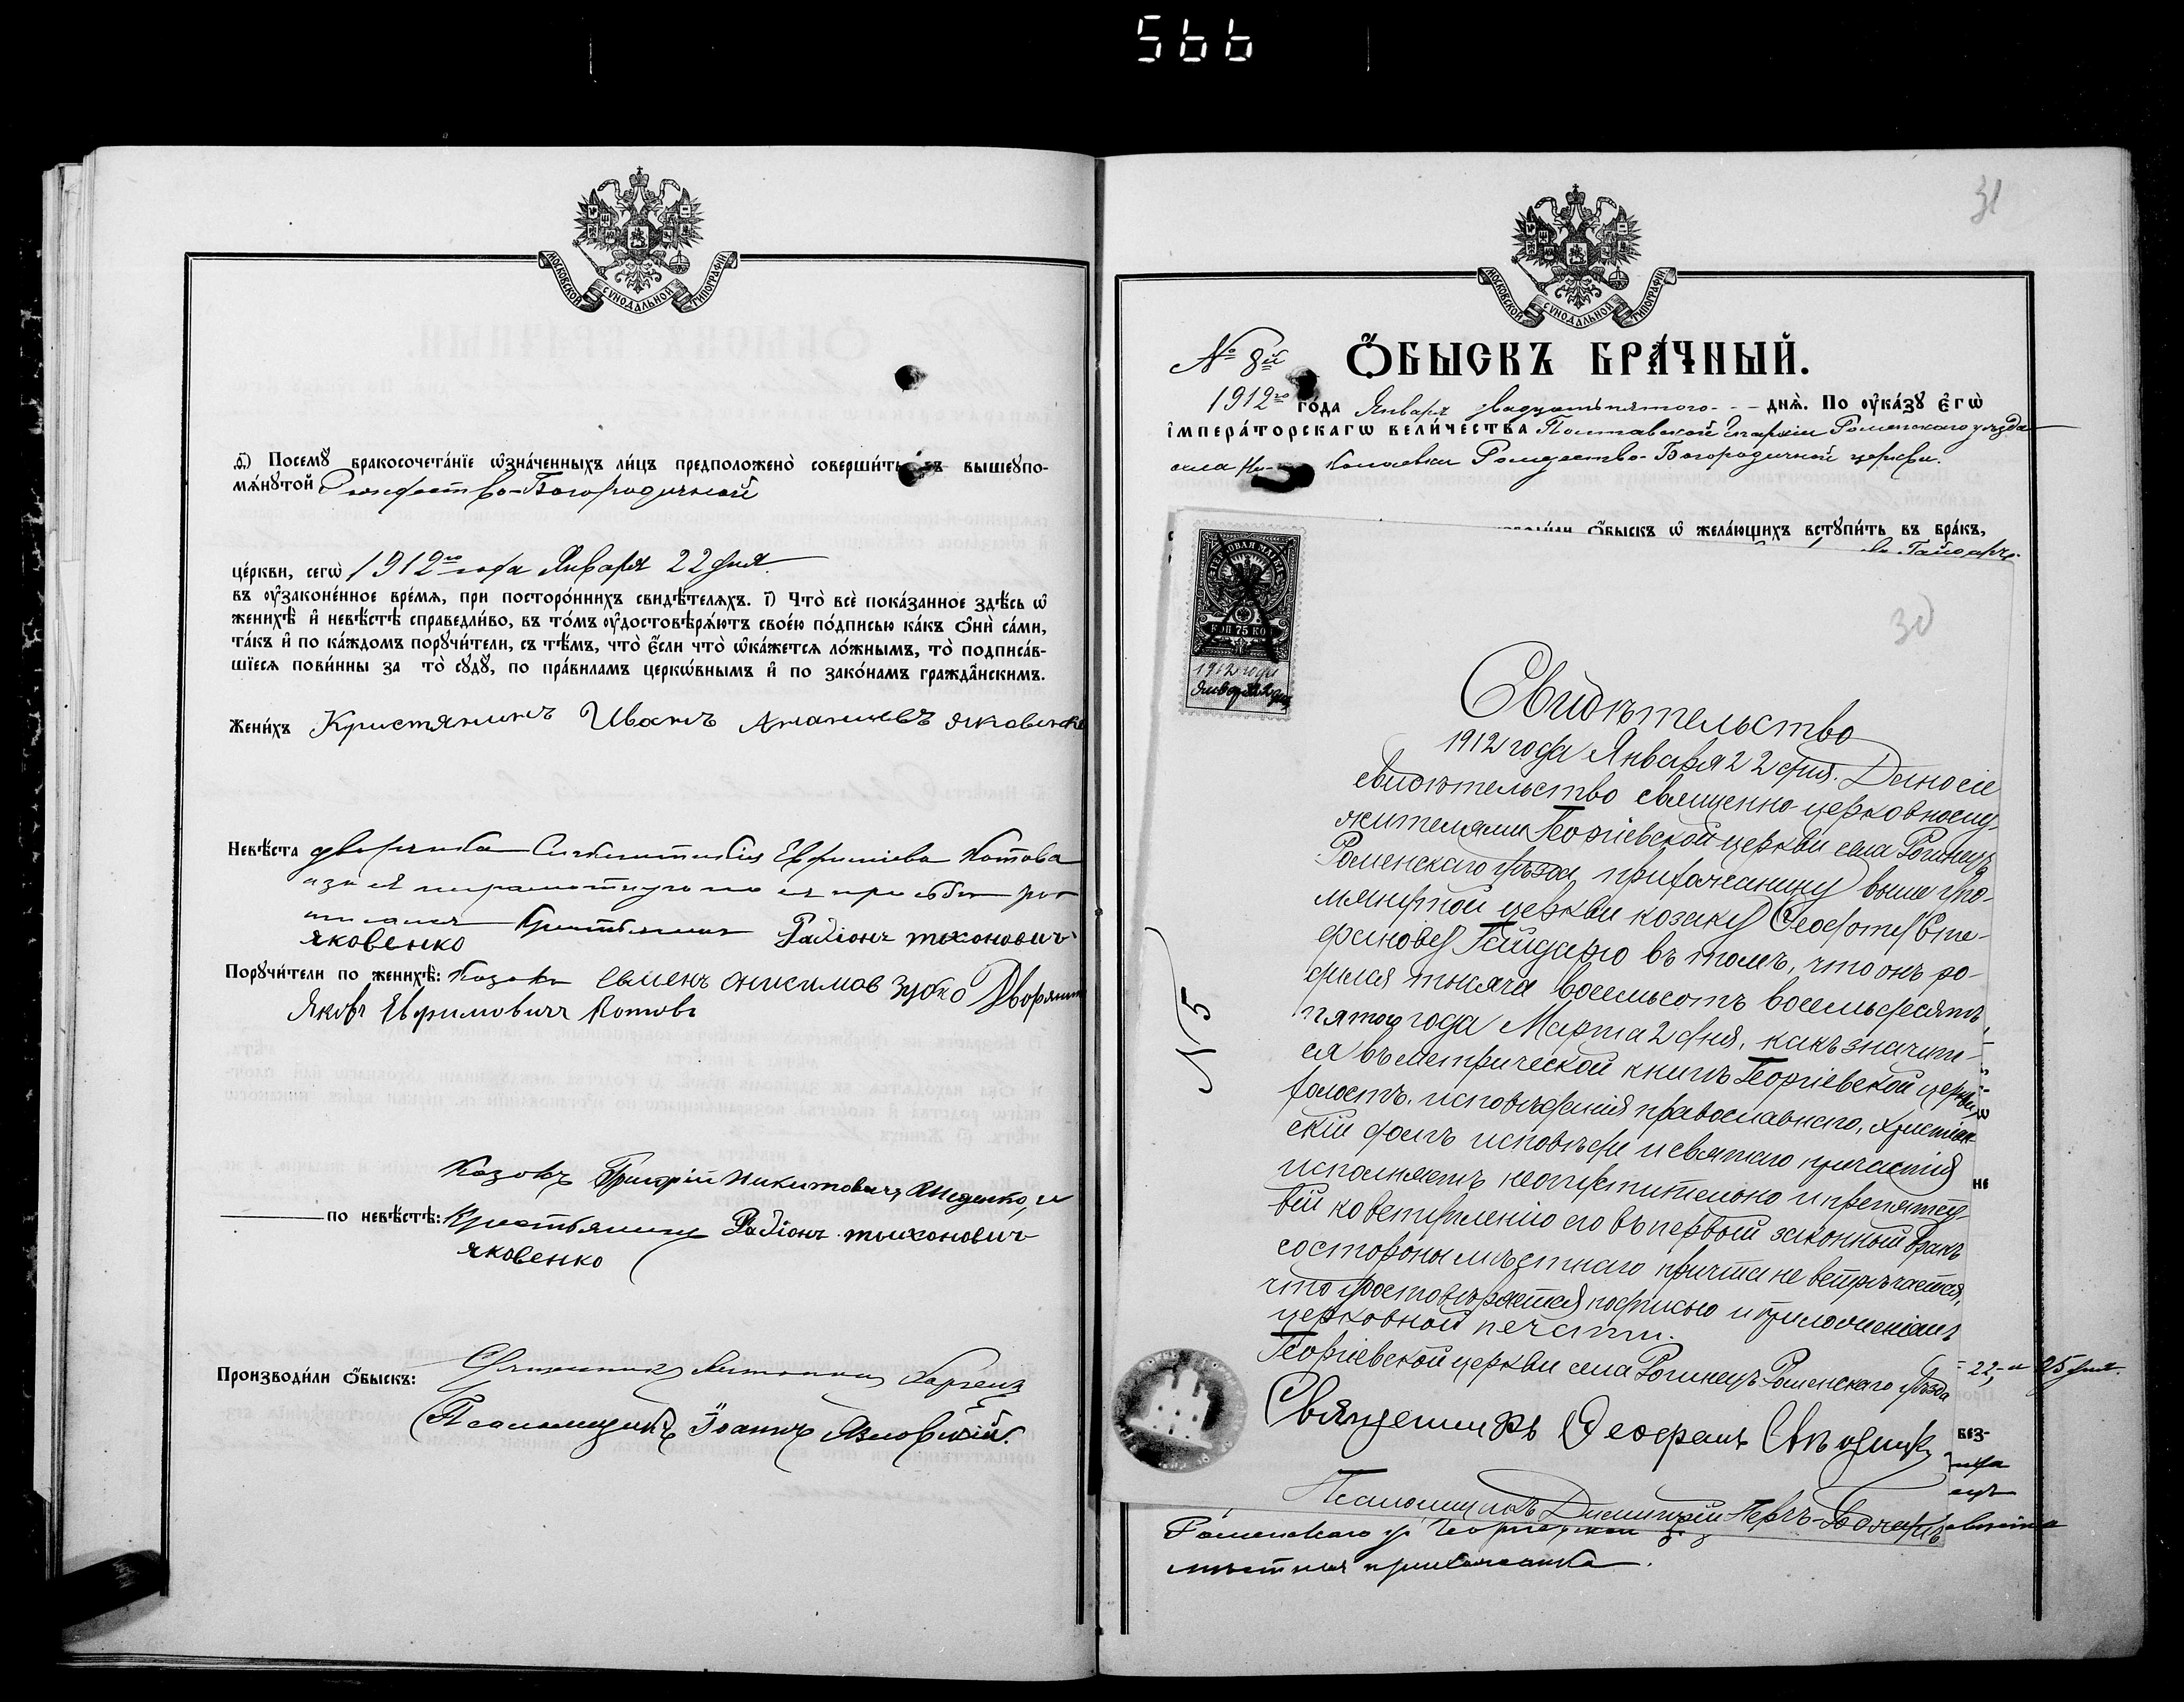 566
МОСКОВСКОЙ СѴНОДАЛЬНОЙ ТИПОГРАФІИ
Посемꙋ̀ бракосочета́нїе ѡ҆зна́ченныхъ ли́цъ предположено̀ соверши́ть въ вышеꙋпо-
мѧ́нꙋтой Рождество-Богородичной
це́ркви, сегѡ̀ 1912го года Января 22 дня.
въ ᲂу҆зако́не́нное вре́мѧ, при посторо́ннихъ свидѣ́телѧхъ. і҃) Что̀ всѐ пока́занное здѣ́сь ѡ҆
женихѣ̀ и҆ невѣ́стѣ справедли́во, въ то́мъ ᲂу҆достовѣрѧ́ютъ свое́ю по́дписью ка́къ ѻ҆нѝ са́ми,
та́къ и҆ по ка́ждомъ порꙋчи́тели, съ тѣ́мъ, что̀ є҆́сли что̀ ѡ҆ка́жется ло́жнымъ, то̀ подписа́в-
шїеся пови́нны за то̀ сꙋдꙋ̀, по пра́виламъ церко́внымъ и҆ по зако́намъ гражда́нскимъ.
Жени́хъ Кристянинъ Иванъ Ананиевъ Яковенко
Невѣ́ста дворянка Евфимиева Котова
а за ея неграмотную по ея просьбѣ рос
писался Крестьянин Радіонъ тихонович
яковенко
Порꙋчи́тели по женихѣ̀: Козакъ Семенъ Онисимов Зубко Дворянин
Яковъ Евфимовичъ Котовъ
Козакъ Григорій Никитовичъ и
по невѣ́стѣ: Крестьянин Радіонъ тихонович
яковенко
Производи́ли ѻ҆́быскъ: Священникъ
Псаломщикъ Іоаннъ
31
МОСКОВСКОЙ СѴНОДАЛЬНОЙ ТИПОГРАФІИ
№ 8й ѺБЫСКЪ БРА́ЧНЫЙ.
1912го го́да Января двадцатьпятого днѧ̀. По ᲂу҆ка́зꙋ Є҆гѡ̀
І҆мпера́торскагѡ вели́чества Полтавской Епархіи Роменскаго уезда
села Рождество-Богородичной церкви.
ѻ҆́быскъ ѡ҆ жела́ющихъ встꙋпи́ть въ бра́къ,
Гайдарь
ГЕРБОВАЯ МАРКА
КОП 75 КОП
1912 года
Января
30
№ 5
Свидѣтельство
1912 года Января 22 дня. Дано сіе
свидѣтельство священно-церковнослу-
жителями Георгіевской церкви села Рогинецъ
Роменскаго уѣзда прихожанину выше упо-
мянутой церкви козаку Феодоту Сте-
фанову Гайдарю въ томъ, что онъ ро-
дился тысяча восемьсотъ восемьдесятъ
пятого года Марта 2 дня, какъ значит-
ся въ метрической книгѣ Георгіевской церкви,
холостъ, исповѣданія православнаго, христіан-
скій долгъ исповѣди и святаго причастія
исполняетъ неопустительно и препятст-
вій ко вступленію его въ первый законный бракъ
со стороны мѣстнаго причта не встрѣчается,
что удостовѣряется подписью и приложеніемъ
церковной печати.
Георгіевской церкви села Рогинецъ Роменскаго уѣзда
22, и 25 дня.
Священникъ Феофанъ
не
без-
Псаломщикъ Димитрій
Роменскаго у Георгіевской
мѣстная прихожанка.